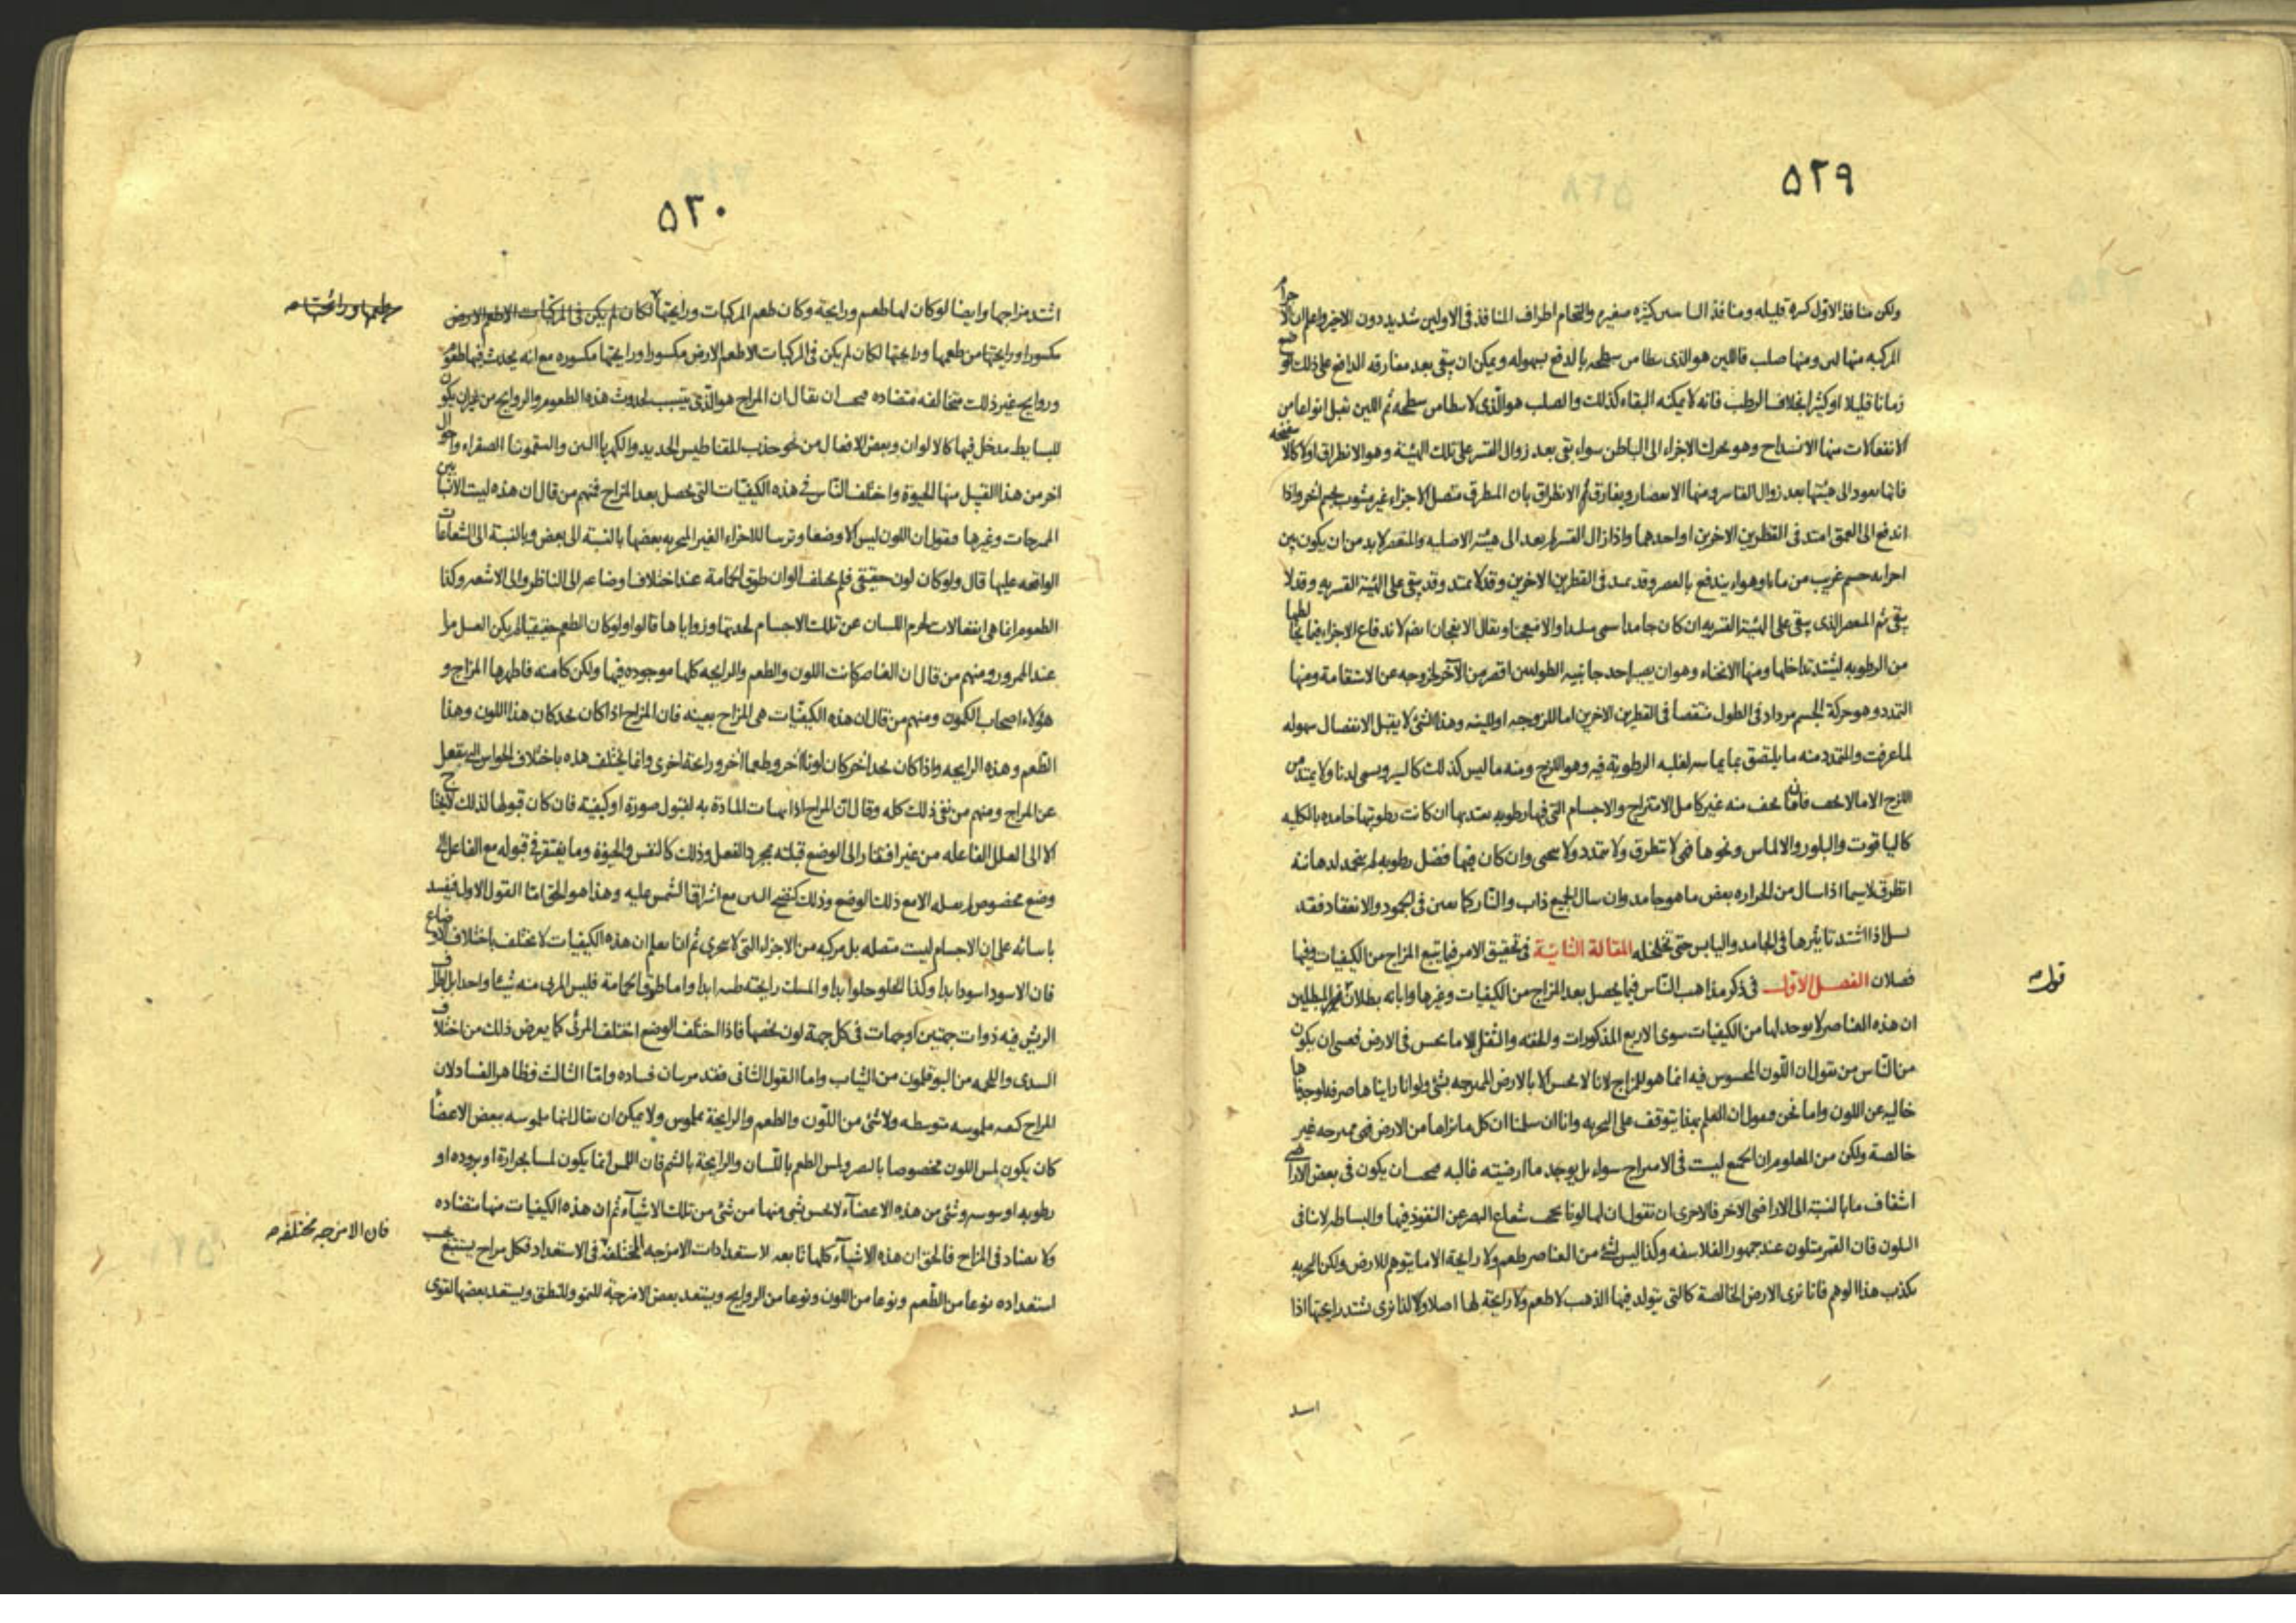 ٥٢٩
ولكن منافذ الاول كبيره قليله ومنافذ السادس كثيره صغيره والتحام اطراف المنافذ فى الاولين شديد دون الاخير واعلم ان الاجرام
المركبه منها لين ومنها صلب فاللين هو الذى يتطامن سطحه بالدفع بسهوله ويمكن ان يبقى بعد مفارقه الدافع على ذلك الوضع
زمانا قليلا او كثيرا بخلاف الرطب فانه لا يمكنه البقاء كذلك والصلب هو الذى لا يتطامن سطحه ثم اللين يقبل انواعا من
الانفعالات منها الانشداح وهو تحرك الاجزاء الى الباطن سواء بقى بعد زوال القسر على تلك الهيئة وهو الانطراق اولا كالاسفنجه
فانها يعود الى هيئتها بعد زوال القاسر ومنها الانعصار ويفارق الانطراق بان المنطرق متصل الاجزاء غير مشوب بجسم اخر واذا
اندفع الى العمق امتد فى القطرين الاخرين او احدهما واذا زال القسر لم يعد الى هيئته الاصليه والمنعصر لابد من ان يكون بين
اجزائه جسم غريب من ماء او هواء يندفع بالعصر وقد يمتد فى القطرين الاخرين وقد لا يمتد وقد يبقى على الهيئة القسريه وقد لا
يبقى ثم المنعصر الذى يبقى على الهيئة القسريه ان كان جامدا سمى متلبدا والا فمنعجنا ويقال الانعجان ايضم لاندفاع الاجزاء فيما يخالطها
من الرطوبه ليشتد تداخلها ومنها الانحناء وهو ان يصير احد جانبيه الطولين اقصر من الآخر لخروجه عن الاستقامة ومنها
التمدد وهو حركة الجسم مزدادا فى الطول منتقصا فى القطرين الاخرين اما للزوجته او للينه وهذا الشئ لا يقبل الانفصال بسهوله
لما عرفت والمتمدد منه ما يلتصق بما يماسه لغلبه الرطوبة فيه وهو اللزج ومنه ما ليس كذلك كالسير ويسمى لدنا ولا يمتد من
اللزج الا ما لا يجف فان ما يجف منه غير كامل الامتزاج والاجسام التى فيها رطوبه يعتد بها ان كانت رطوبتها جامده بالكليه
كالياقوت والبلور والالماس ونحوها فهى لا تنطرق ولا تتمدد ولا تنحنى وان كان فيها فضل رطوبه لم ينجمد لدهانته
انطرق لا سيما اذا سال من الحراره بعض ما هو جامد وان سال الجميع ذاب والنار كما تعين فى الجمود والانعقاد فقد
اذا اشتد تاثيرها فى الجامد واليابس حتى تخلخله المقالة الثانية فى تحقيق الامر فيما يتبع المزاج من الكيفيات وفيها
فصلان الفصل الاول فى ذكر مذاهب الناس فيما يحصل بعد المزاج من الكيفيات وغيرها وابانه بطلان قول المبطلين
قول
ان هذه العناصر لا يوجد لها من الكيفيات سوى الاربع المذكورات والخفه والثقل الا ما يحس فى الارض فعسى ان يكون
من الناس من يقول ان اللون المحسوس فيه انما هو للمزاج لانا لا نحس الا بالارض الممتزجه بشئ ولو انا راينا ها صرفه لوجدناها
خاليه عن اللون واما نحن فنقول ان العلم بهذا يتوقف على التجربه وانا ان سلمنا ان كل ما نراها من الارض فهى ممتزجه غير
خالصة ولكن من المعلوم ان الجميع ليست فى الامتزاج سواء بل يوجد ما ارضيته غالبه فيجب ان يكون فى بعض الاراضى
اشفاف ما بالنسبة الى الاراضى الآخر فالاحرى ان نقول ان لها لونا يحجب شعاع البصر عن النفوذ فيها والبساطه لا تنافى
التلون فان القمر متلون عند جمهور الفلاسفه وكذا ليس لشئ من العناصر طعم ولا رايحة الا ما يتوهم للارض ولكن التجربه
تكذب هذا الوهم فانا نرى الارض الخالصة كالتى يتولد فيها الذهب لا طعم ولا رايحة لها اصلا ولانا نرى تشتد رايحتها اذا
اسد
٥٣٠
اشتد مزاجها وايضا لو كان لها طعم ورايحة وكان طعم المركبات ورايحتها لكان لم يكن فى المركبات الا طعم الارض
طعمها ورائحتها
مكسورا ورايحتها من طعمها ورايحتها لكان لم يكن فى المركبات الا طعم الارض مكسورا ورايحتها مكسوره مع انه يحدث فيها طعوم
وروايح غير ذلك متخالفه متضاده فيجب ان يقال ان المزاج هو الذى يتسبب لحدوث هذه الطعوم والروايح من غير ان يكون
للبسايط مدخل فيها كالالوان وبعض الافعال من نحو جذب المقناطيس الحديد والكهربا التبن والسقمونيا الصفراء واحوال
اخر من هذا القبيل منها الحيوة واختلف الناس فى هذه الكيفيات التى يحصل بعد المزاج فمنهم من قال ان هذه ليست الا نسبا بين
الممتزجات وغيرها فيقول ان اللون ليس الا وضعا وترتيبا للاجزاء الغير المتجزيه بعضها بالنسبة الى بعض وبالنسبة الى الشعاعات
الواقعه عليها قال ولو كان لون حقيقى فلم يختلف الوان طوق الحمامة عند اختلاف اوضاعه الى الناظر والى الاشعه وكذا
الطعوم انما هى انفعالات لجرم اللسان عن تلك الاجسام لحدتها وزواياها قالوا ولو كان الطعم حقيقيا لم يكن العسل مرا
عند الممرور ومنهم من قال ان العناصر كانت اللون والطعم والرايحه كلها موجوده فيها ولكن كامنه فاظهرها المزاج و
هؤلاء اصحاب الكمون ومنهم من قال ان هذه الكيفيات هى المزاج بعينه فان المزاج اذا كان بحد كان هذا اللون وهذا
الطعم وهذه الرايحه واذا كان بحد اخر كان لونا آخر وطعما آخر ورايحة اخرى وانما يختلف هذه باختلاف الحواس التى ينفعل
عن المزاج ومنهم من نفى ذلك كله وقال ان المزاج اذا تهيات المادة به لقبول صورة او كيفية فان كان قبولها لذلك لا يحتاج
الا الى العلل الفاعله من غير افتقار الى الوضع قبلته بمجرد الفعل وذلك كالنفس والحيوة وما يفتقر فى قبوله مع الفاعل الى
وضع مخصوص لم يقبله الا مع ذلك الوضع وذلك كنضج التين مع اشراق الشمس عليه وهذا هو الحق اما القول الاول فيفسد
بابتنائه على ان الاجسام ليست متصله بل مركبه من الاجزاء التى لا تتجزى ثم انا نعلم ان هذه الكيفيات لا تختلف باختلاف الاوضاع
فان الاسود اسود ابدا وكذا الحلو حلو ابدا والمسك رايحته طيبه ابدا واما طوق الحمامة فليس المرئى منه شيئا واحدا بل اطراف
الريش فيه ذوات جهتين او جهات فى كل جهة لون يخصها فاذا اختلف الوضع اختلف المرئى كما يعرض ذلك من اختلاف
السدى واللحمه من البوقلمون من الثياب واما القول الثانى فقد مر بيان فساده واما الثالث فظاهر الفساد لان
المزاج كيفيه ملموسه متوسطه ولا شئ من اللون والطعم والرايحة بملموس ولا يمكن ان يقال انها ملموسه ببعض الاعضاء
كان يكون لمس اللون مخصوصا بالبصر ولمس الطعم باللسان والرايحة بالشم فان اللمس انما يكون لمسا بحرارة او بروده او
رطوبه او يبوسه وشئ من هذه الاعضآء لا يحس بشئ منها من شئ من تلك الاشيآء ثم ان هذه الكيفيات منها متضاده
ولا تضاد فى المزاج فالحق ان هذه الاشيآء كلها تابعه لاستعدادات الامزجه المختلفة فى الاستعداد فكل مزاج يستتبع بحسب
فان الامزجه مختلفه
استعداده نوعا من الطعم ونوعا من اللون ونوعا من الروايح ويستعد بعض الامزجة للنمو والنطق ويستعد بعضها لقوى